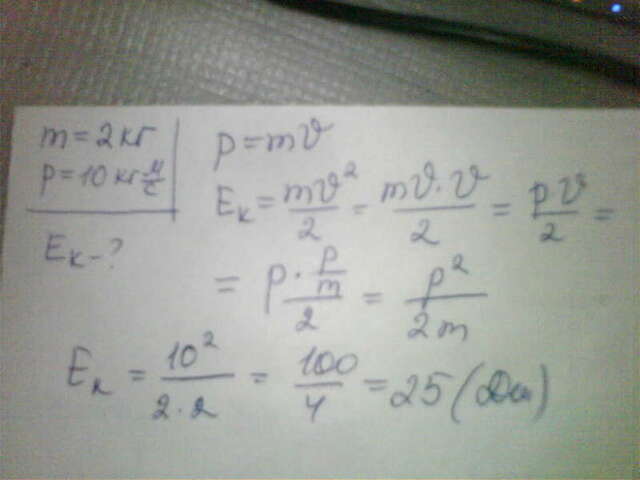 m = 2 кг
p = 10 кг м/с
Eк - ?
p = mϑ
Eк = mϑ²/2 = mϑ·ϑ/2 = pϑ/2 =
= p · p/m / 2 = p²/2m
Eк = 10²/2·2 = 100/4 = 25 (Дж)